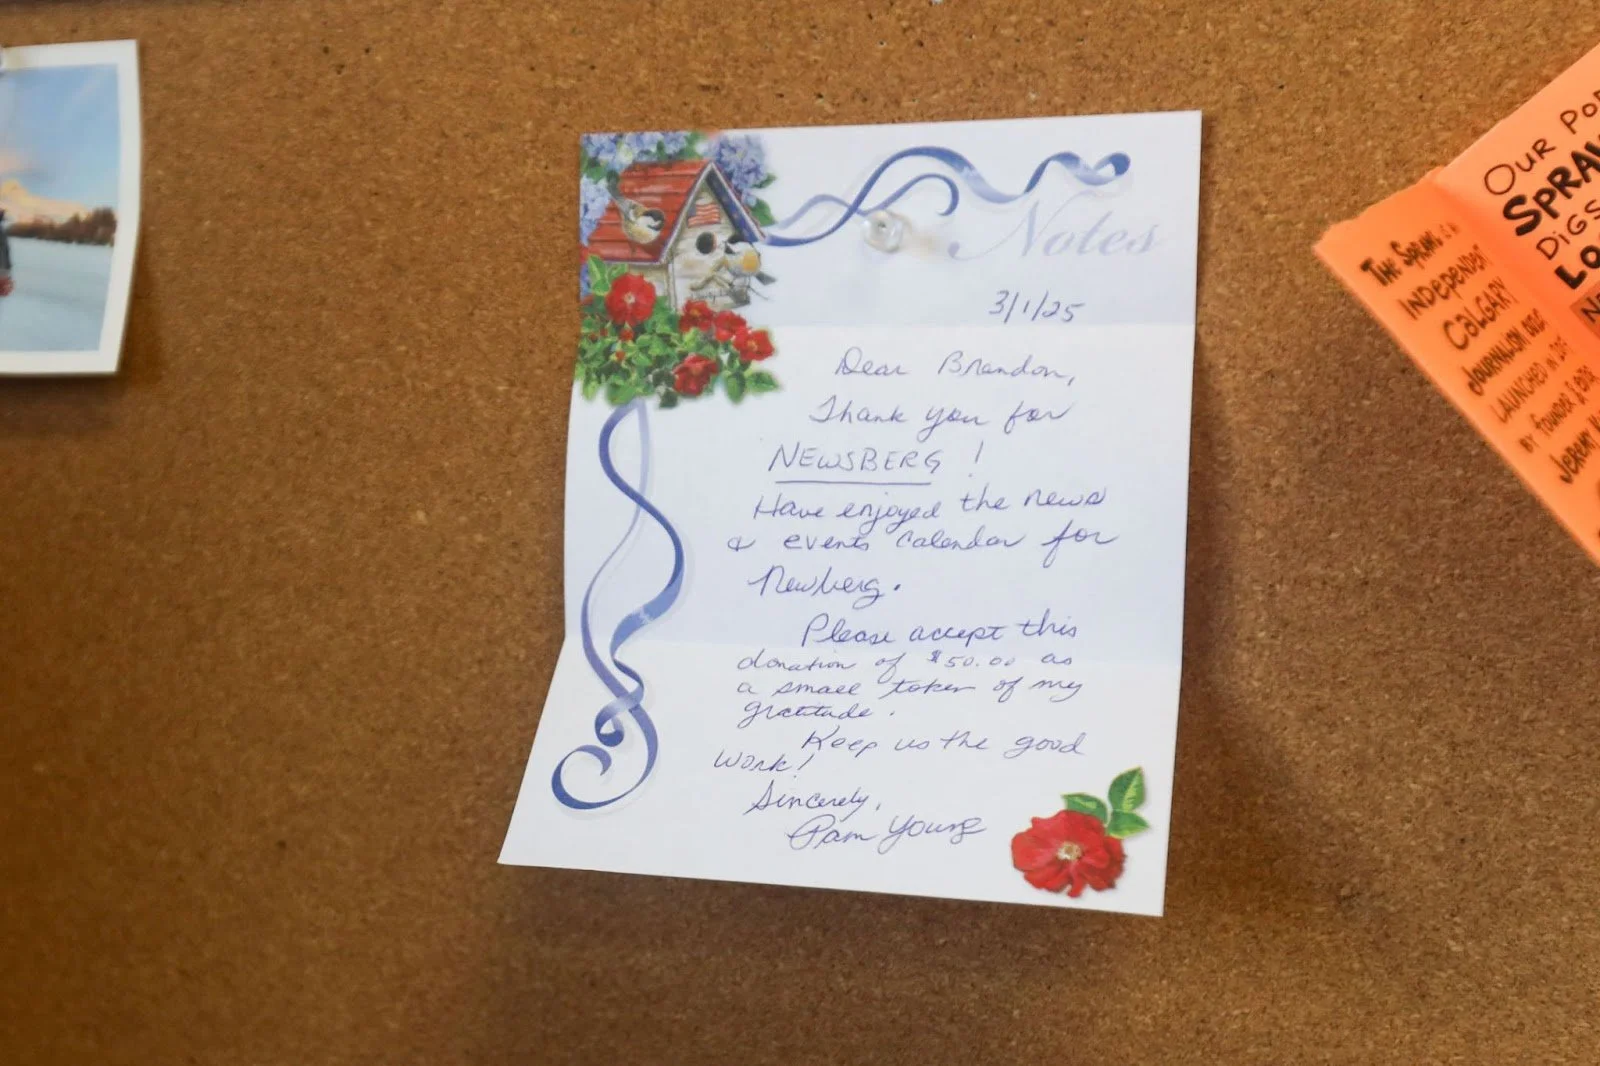 Notes
3/1/25
Dear Brandon,
Thank you for
NEWSBERG!
Have enjoyed the news
& events calendar for
Newberg.
Please accept this
donation of $50.00 as
a small token of my
gratitude.
Keep us the good
work!
Sincerely,
Pam Young
OUR
SPRAWL
DIGS
THE SPRAWL IS
INDEPENDENT
CALGARY
JOURNALISM AND
LAUNCHED IN
BY FOUNDER &
JEREMY